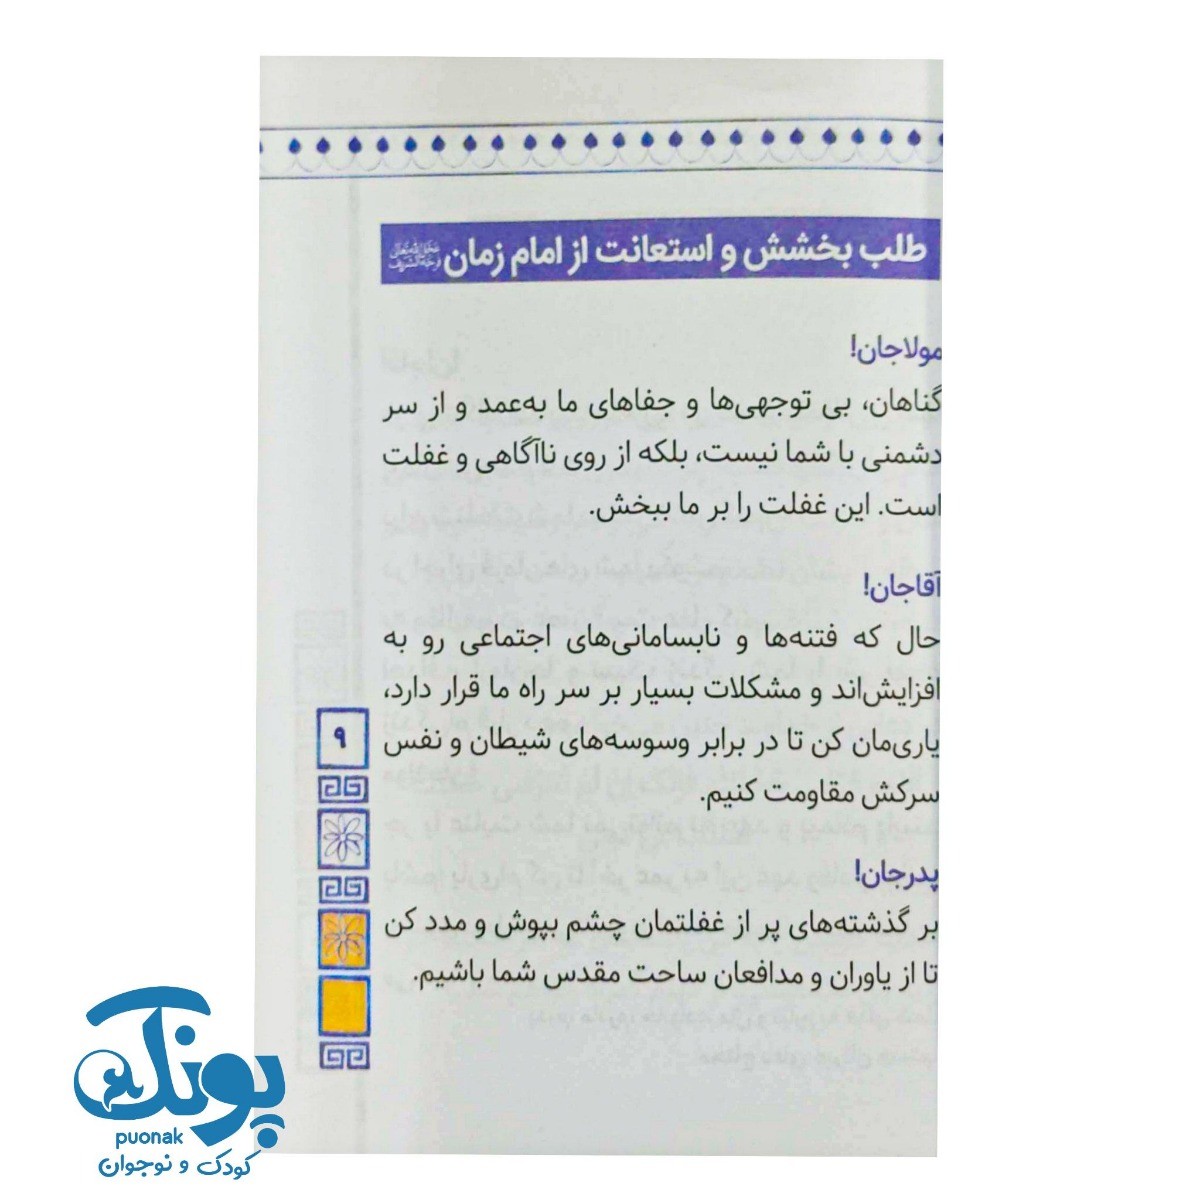 طلب بخشش و استعانت از امام زمان عجل الله تعالی فرجه الشریف
مولاجان!
گناهان، بی توجهی‌ها و جفاهای ما به‌عمد و از سر
دشمنی با شما نیست، بلکه از روی ناآگاهی و غفلت
است. این غفلت را بر ما ببخش.
آقاجان!
حال که فتنه‌ها و نابسامانی‌های اجتماعی رو به
افزایش‌اند و مشکلات بسیار بر سر راه ما قرار دارد،
یاری‌مان کن تا در برابر وسوسه‌های شیطان و نفس
سرکش مقاومت کنیم.
پدرجان!
بر گذشته‌های پر از غفلتمان چشم بپوش و مدد کن
تا از یاوران و مدافعان ساحت مقدس شما باشیم.
۹
پونک
puonak
کودک و نوجوان